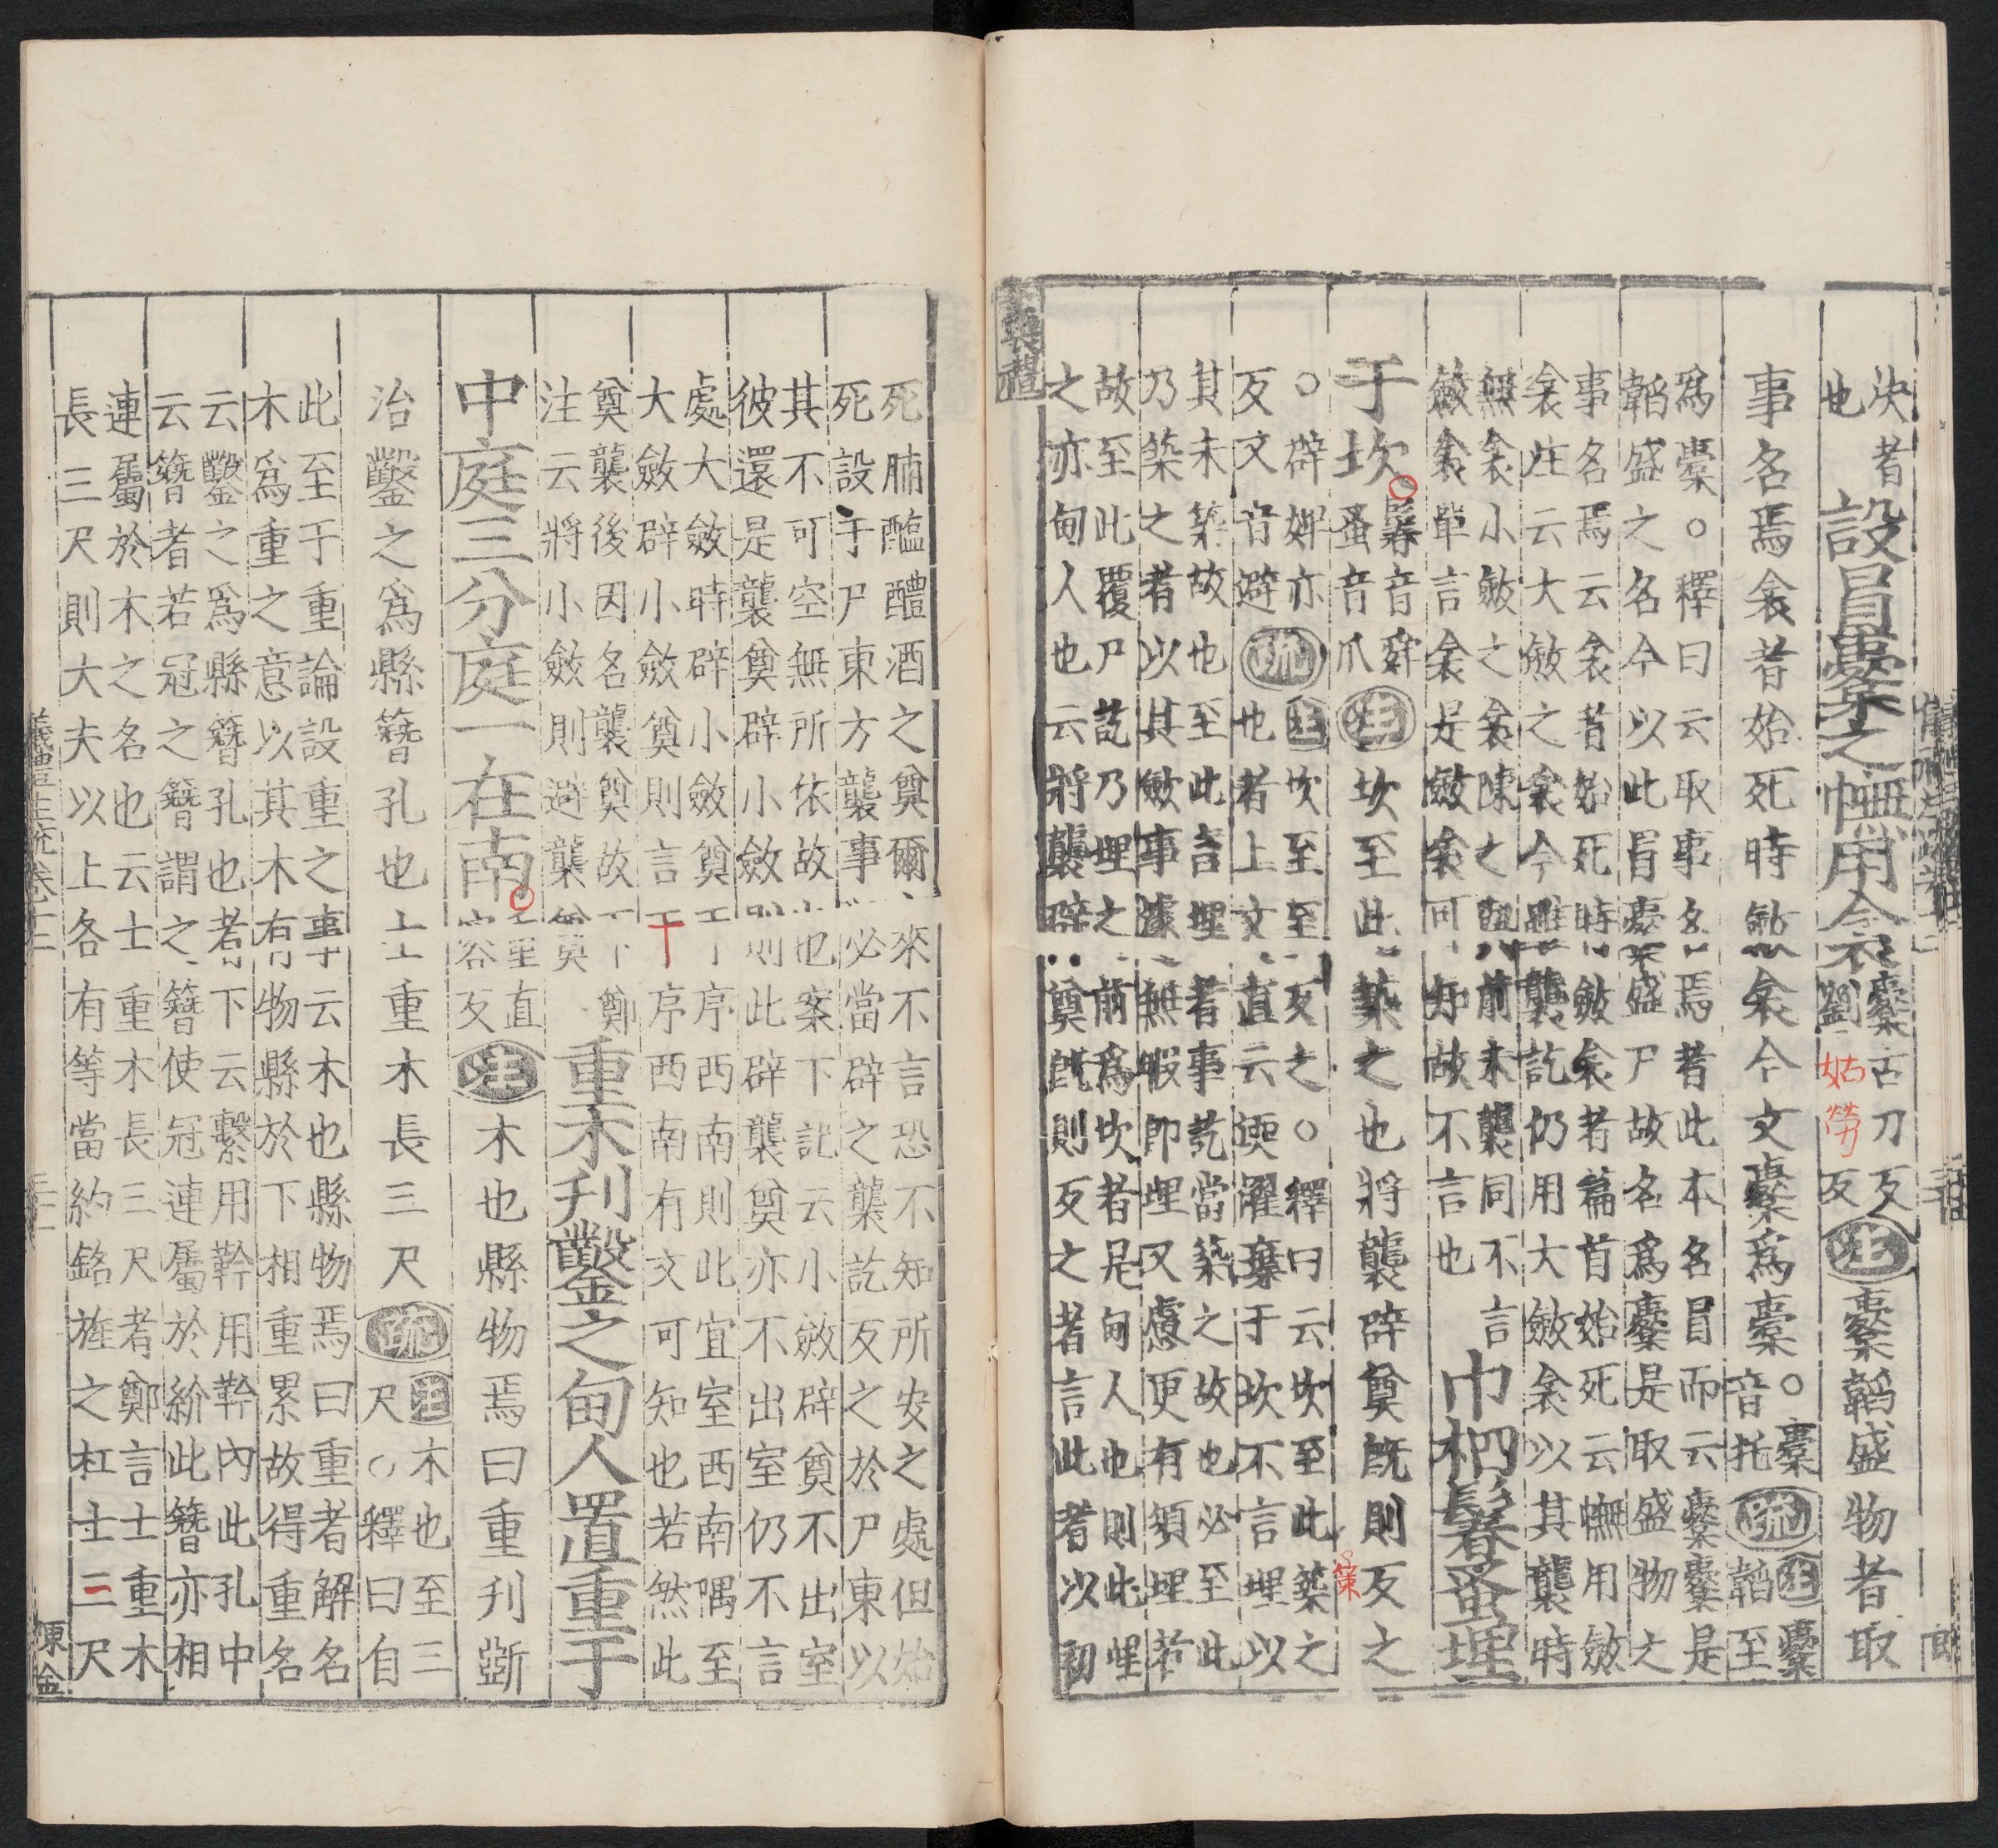 決者
也
設冒櫜之幠用衾
櫜古刀反
劉姑勞反
注櫜韜盛物者取
事名焉衾者始死時斂衾今文櫜爲橐○
橐
音托
疏
注櫜
韜至
爲橐○釋曰云取事名焉者此本名冒而云櫜櫜是
韜盛之名今以此冒櫜盛尸故名爲櫜是取盛物之
事名焉云衾者始死時斂衾者篇首始死云幠用斂
衾注云大斂之衾今雖襲訖仍用大斂衾以其襲時
無衾小斂之衾陳之與前未襲同不言
斂衾單言衾是斂衾可知故不言也
巾柶鬊蚤埋
于坎
鬊音舜
蚤音爪
注坎至此築之也將襲辟奠既則反之
策
○辟婢亦
反文音避
疏
注坎至至反之○釋曰云坎至此築之
也者上文直云渜濯棄于坎不言埋以
其未築故也至此言埋者事訖當築之故也必至此
乃築之者以其斂事遽無暇即埋又慮更有須埋若
故至此覆尸訖乃埋之前爲坎者是甸人也則此埋
之亦甸人也云將襲辟奠既則反之者言此者以初
士喪禮
死脯醢醴酒之奠爾來不言恐不知所安之處但始
死設于尸東方襲事必當辟之襲訖反之於尸東以
其不可空無所依故也案下記云小斂辟奠不出室
彼還是襲奠辟小斂則此辟襲奠亦不出室仍不言
處大斂時辟小斂奠于序西南則此宜室西南隅至
大斂辟小斂奠則言于序西南有文可知也若然此
奠襲後因名襲奠故下鄭
注云將小斂則避襲奠
重木刊鑿之甸人置重于
中庭三分庭一在南
重直
容反
注木也縣物焉曰重刊斲
治鑿之爲縣簪孔也士重木長三尺
疏
注木也至三
尺○釋曰自
此至于重論設重之事云木也縣物焉曰重者解名
木爲重之意以其木有物縣於下相重累故得重名
云鑿之爲縣簪孔也者下云繫用靲用靲內此孔中
云簪者若冠之簪謂之簪使冠連屬於紒此簪亦相
連屬於木之名也云士重木長三尺者鄭言士重木
長三尺則大夫以上各有等當約銘旌之杠士三尺
儀禮注疏卷十二
陳金